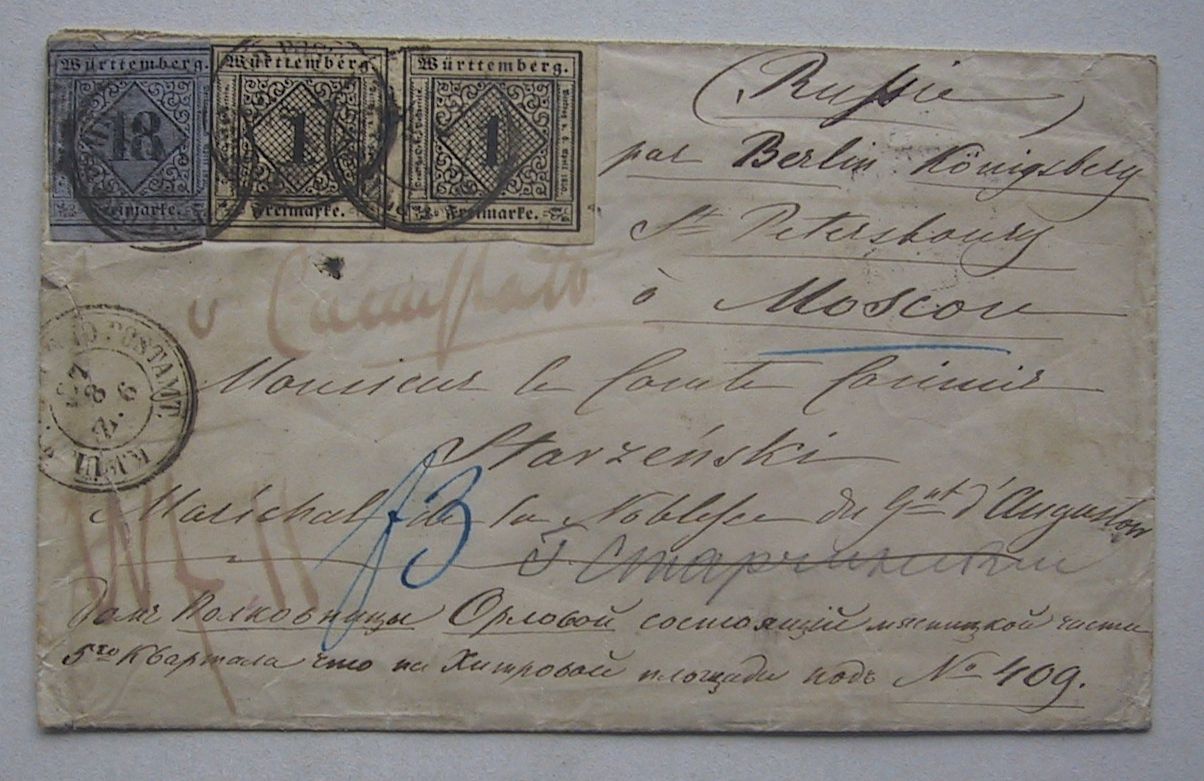 Württemberg. Württemberg. Württemberg.
18 1 1
Freimarke. Freimarke. Freimarke.
(Russie)
par Berlin Königsberg
St Petersbourg
à Moscou
v Cannstatt
Monsieur le Comte Casimir
Starzeński
Maréchal de la Noblesse du Gnt d'Augustow
POSTAMT.
13
Домъ Полковницы Орловой состоящій мясницкой части
5го Квартала что на Хитровой площади подъ № 409.